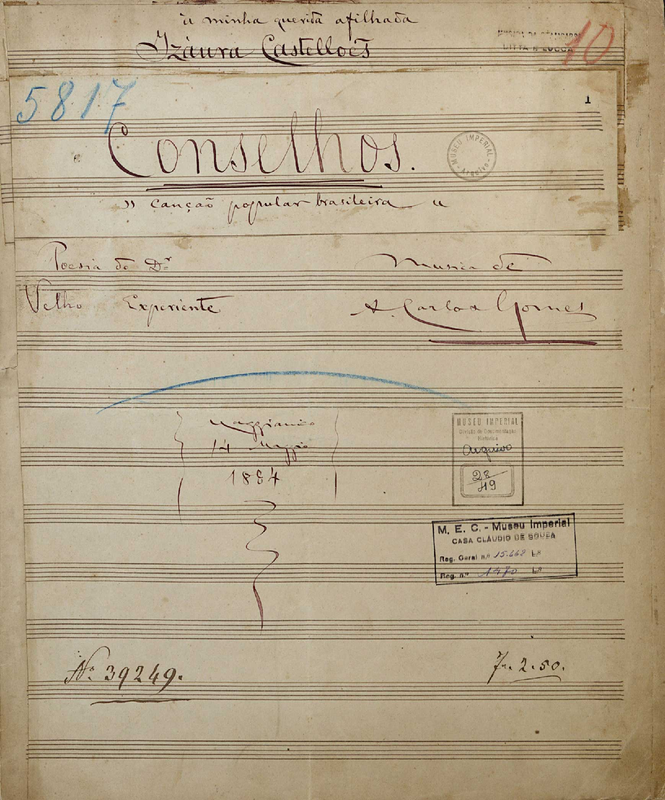 à minha querida afilhada
Izáura Castellões
10
5817
1
Conselhos.
MUSEU IMPERIAL
Arquivo
" Canção popular brasileira "
Poesia do Dr
Velho Experiente
Musica de
A. Carlos Gomes
Maggianico
14 Maggio
1884
MUSEU IMPERIAL
Divisão de Documentação
Histórica
Arquivo
28
H9
M. E. C. - Museu Imperial
CASA CLÁUDIO DE SOUSA
Reg. Geral n.º 15.268 Lº
Reg. n.º 1470 Lº
Nº 39249.
Fr. 2.50.